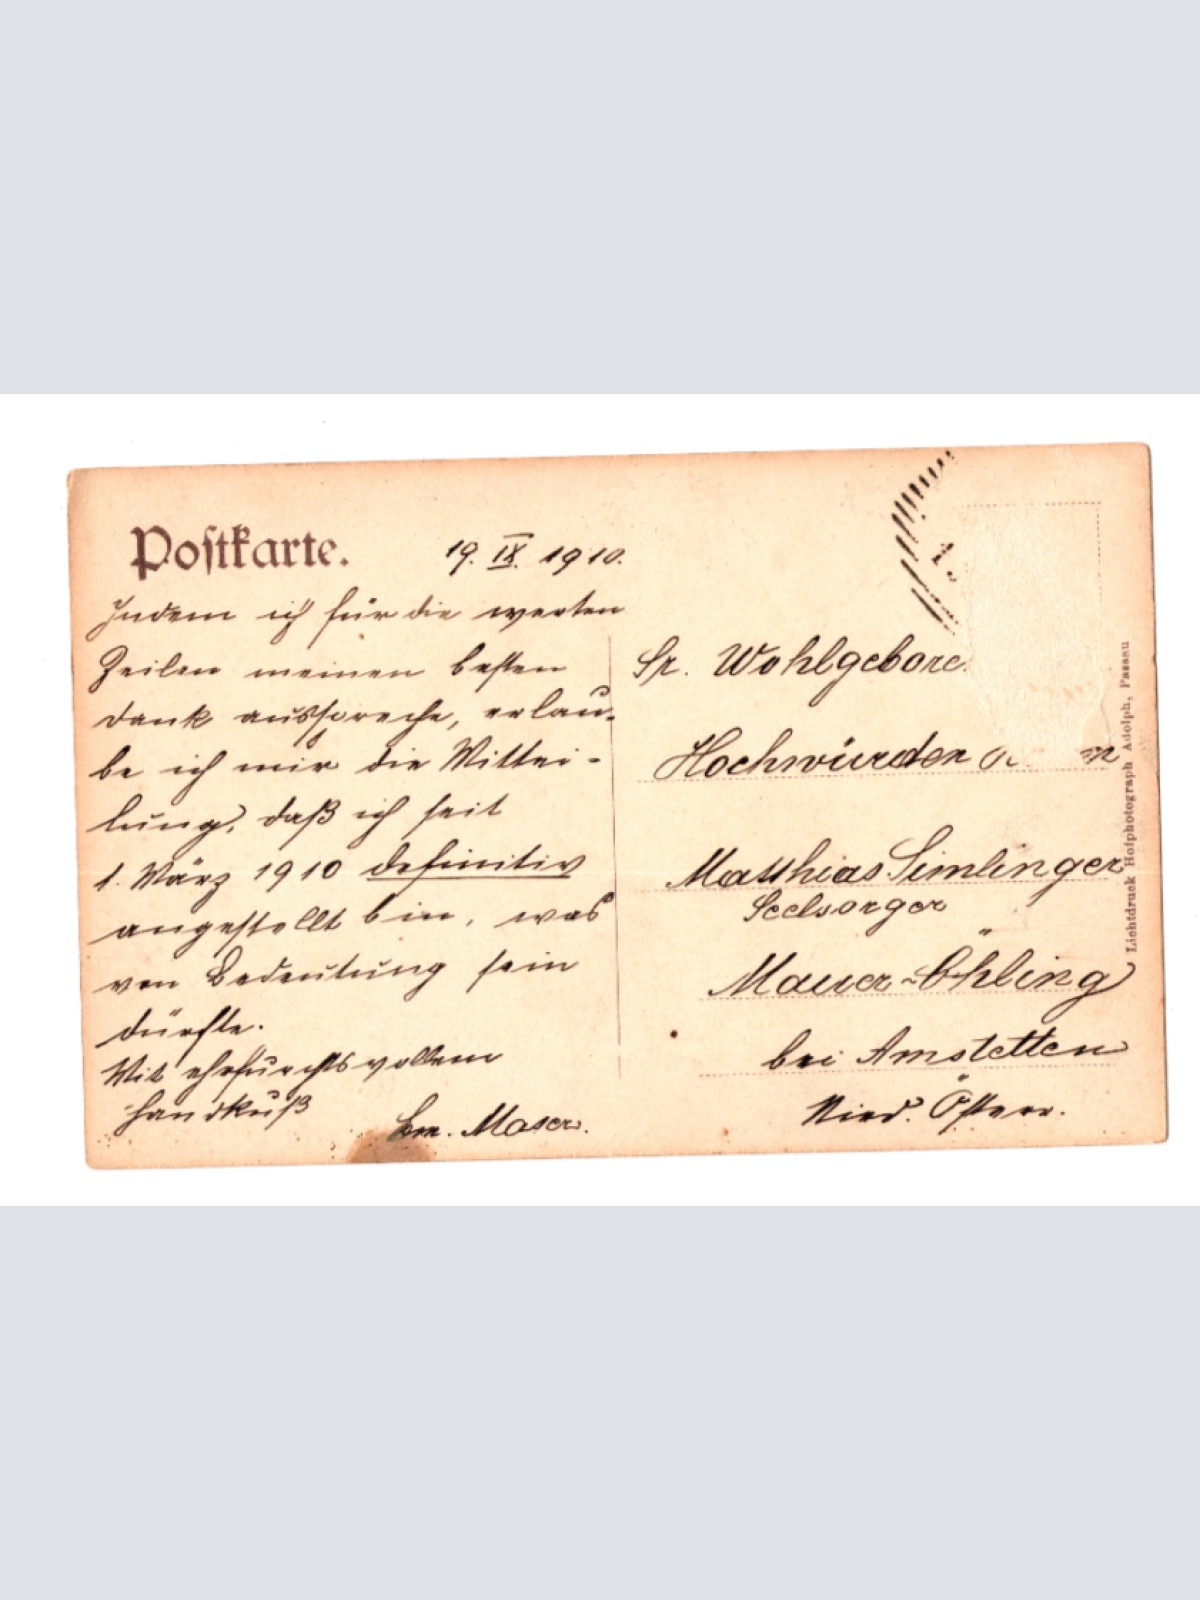 Postkarte.
19. IX. 1910.
Indem ich für die werten
Zeilen meinen besten
Dank ausspreche, erlau-
be ich mir die Mittei-
lung, daß ich seit
1. März 1910 definitiv
angestellt bin, was
von Bedeutung sein
dürfte.
Mit ehrfurchtsvollem
Handkuß
Maser.
Sr. Wohlgebore
Hochwürden
Matthias Simlinger
Seelsorger
Mauer-Öhling
bei Amstetten
Nied. Österr.
Lichtdruck Hofphotograph Adolph, Passau